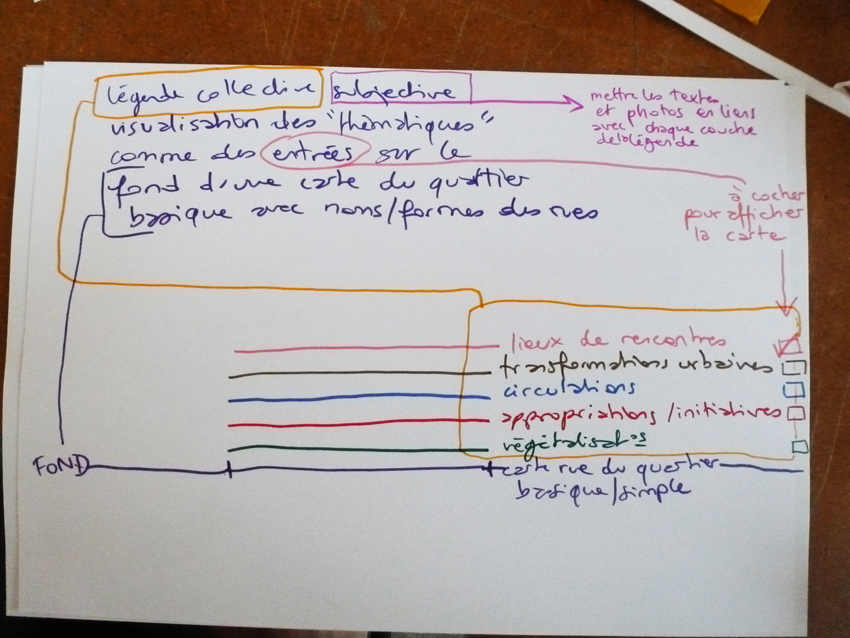 légende collective subjective
visualisation des "thématiques"
comme des entrées sur le
fond d'une carte du quartier
basique avec noms/formes des rues
mettre les textes
et photos en liens
avec chaque couche
de la légende
à cocher
pour afficher
la carte
lieux de rencontres
transformations urbaines
circulations
appropriations/initiatives
végétalisat°s
FOND
carte rue du quartier
basique/simple